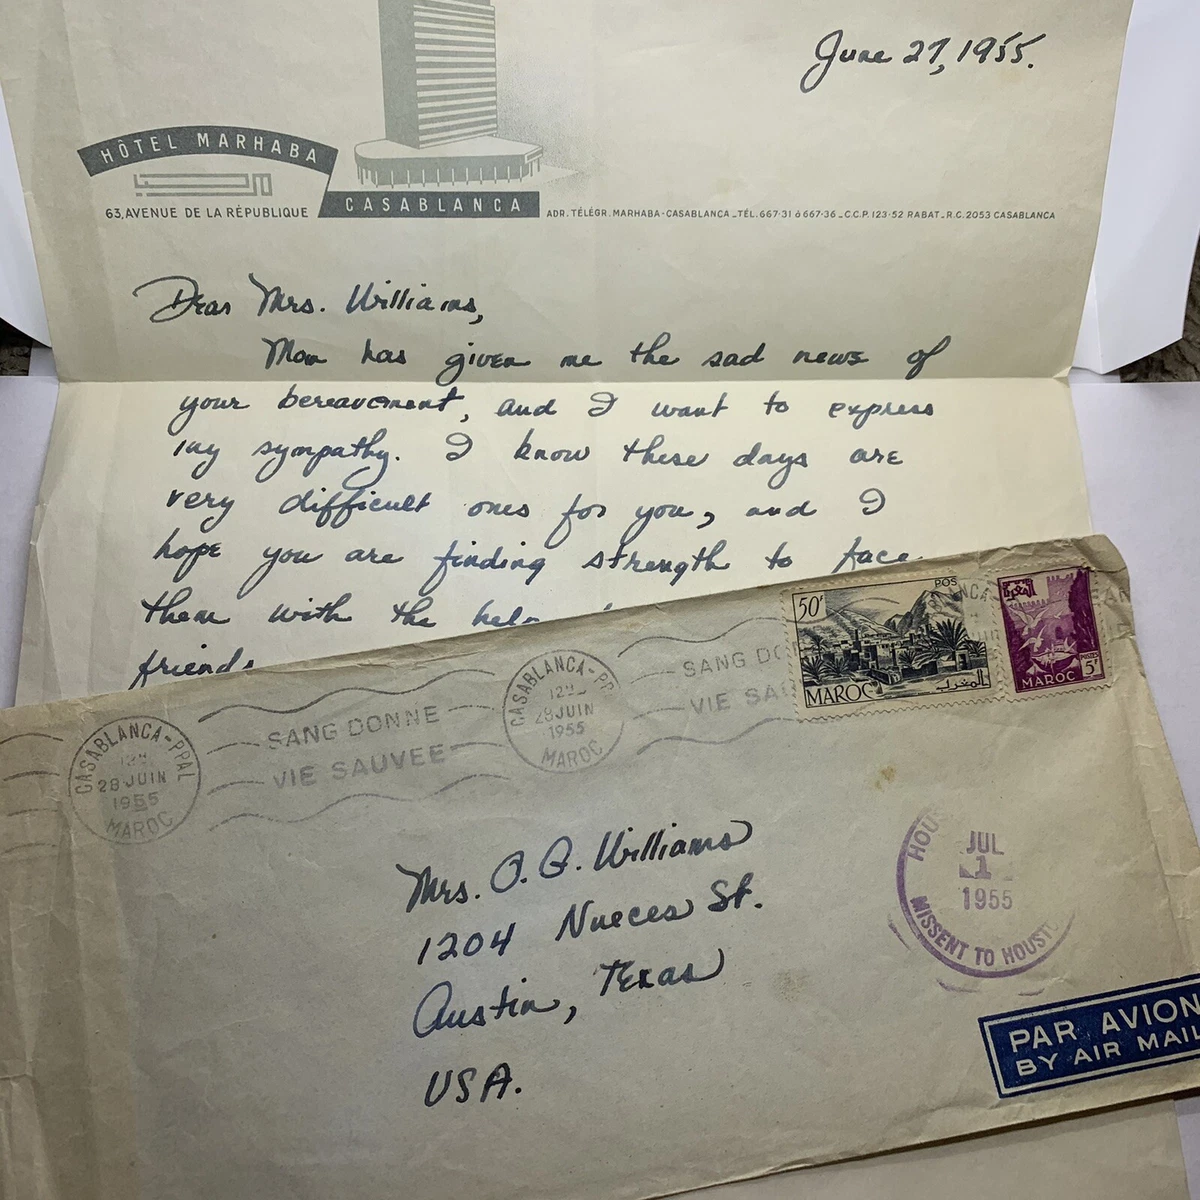 June 27, 1955.
HÔTEL MARHABA
63, AVENUE DE LA RÉPUBLIQUE
CASABLANCA
ADR. TÉLÉGR. MARHABA-CASABLANCA _ TÉL. 667·31 à 667·36 _ C.C.P. 123·52 RABAT _ R.C. 2053 CASABLANCA
Dear Mrs. Williams,
Mom has given me the sad news of
your bereavement, and I want to express
my sympathy. I know these days are
very difficult ones for you, and I
hope you are finding strength to face
them with the
friends
CASABLANCA-PPAL
28 JUIN
1955
MAROC
SANG DONNE
VIE SAUVEE
CASABLANCA-PP
28 JUIN
1955
MAROC
SANG DO
VIE SAU
50F
POS
MAROC
المغرب
المغرب
POSTES
5F
MAROC
Mrs. O. G. Williams
1204 Nueces St.
Austin, Texas
USA.
HOU
JUL
1
1955
MISSENT TO HOUST
PAR AVION
BY AIR MAIL